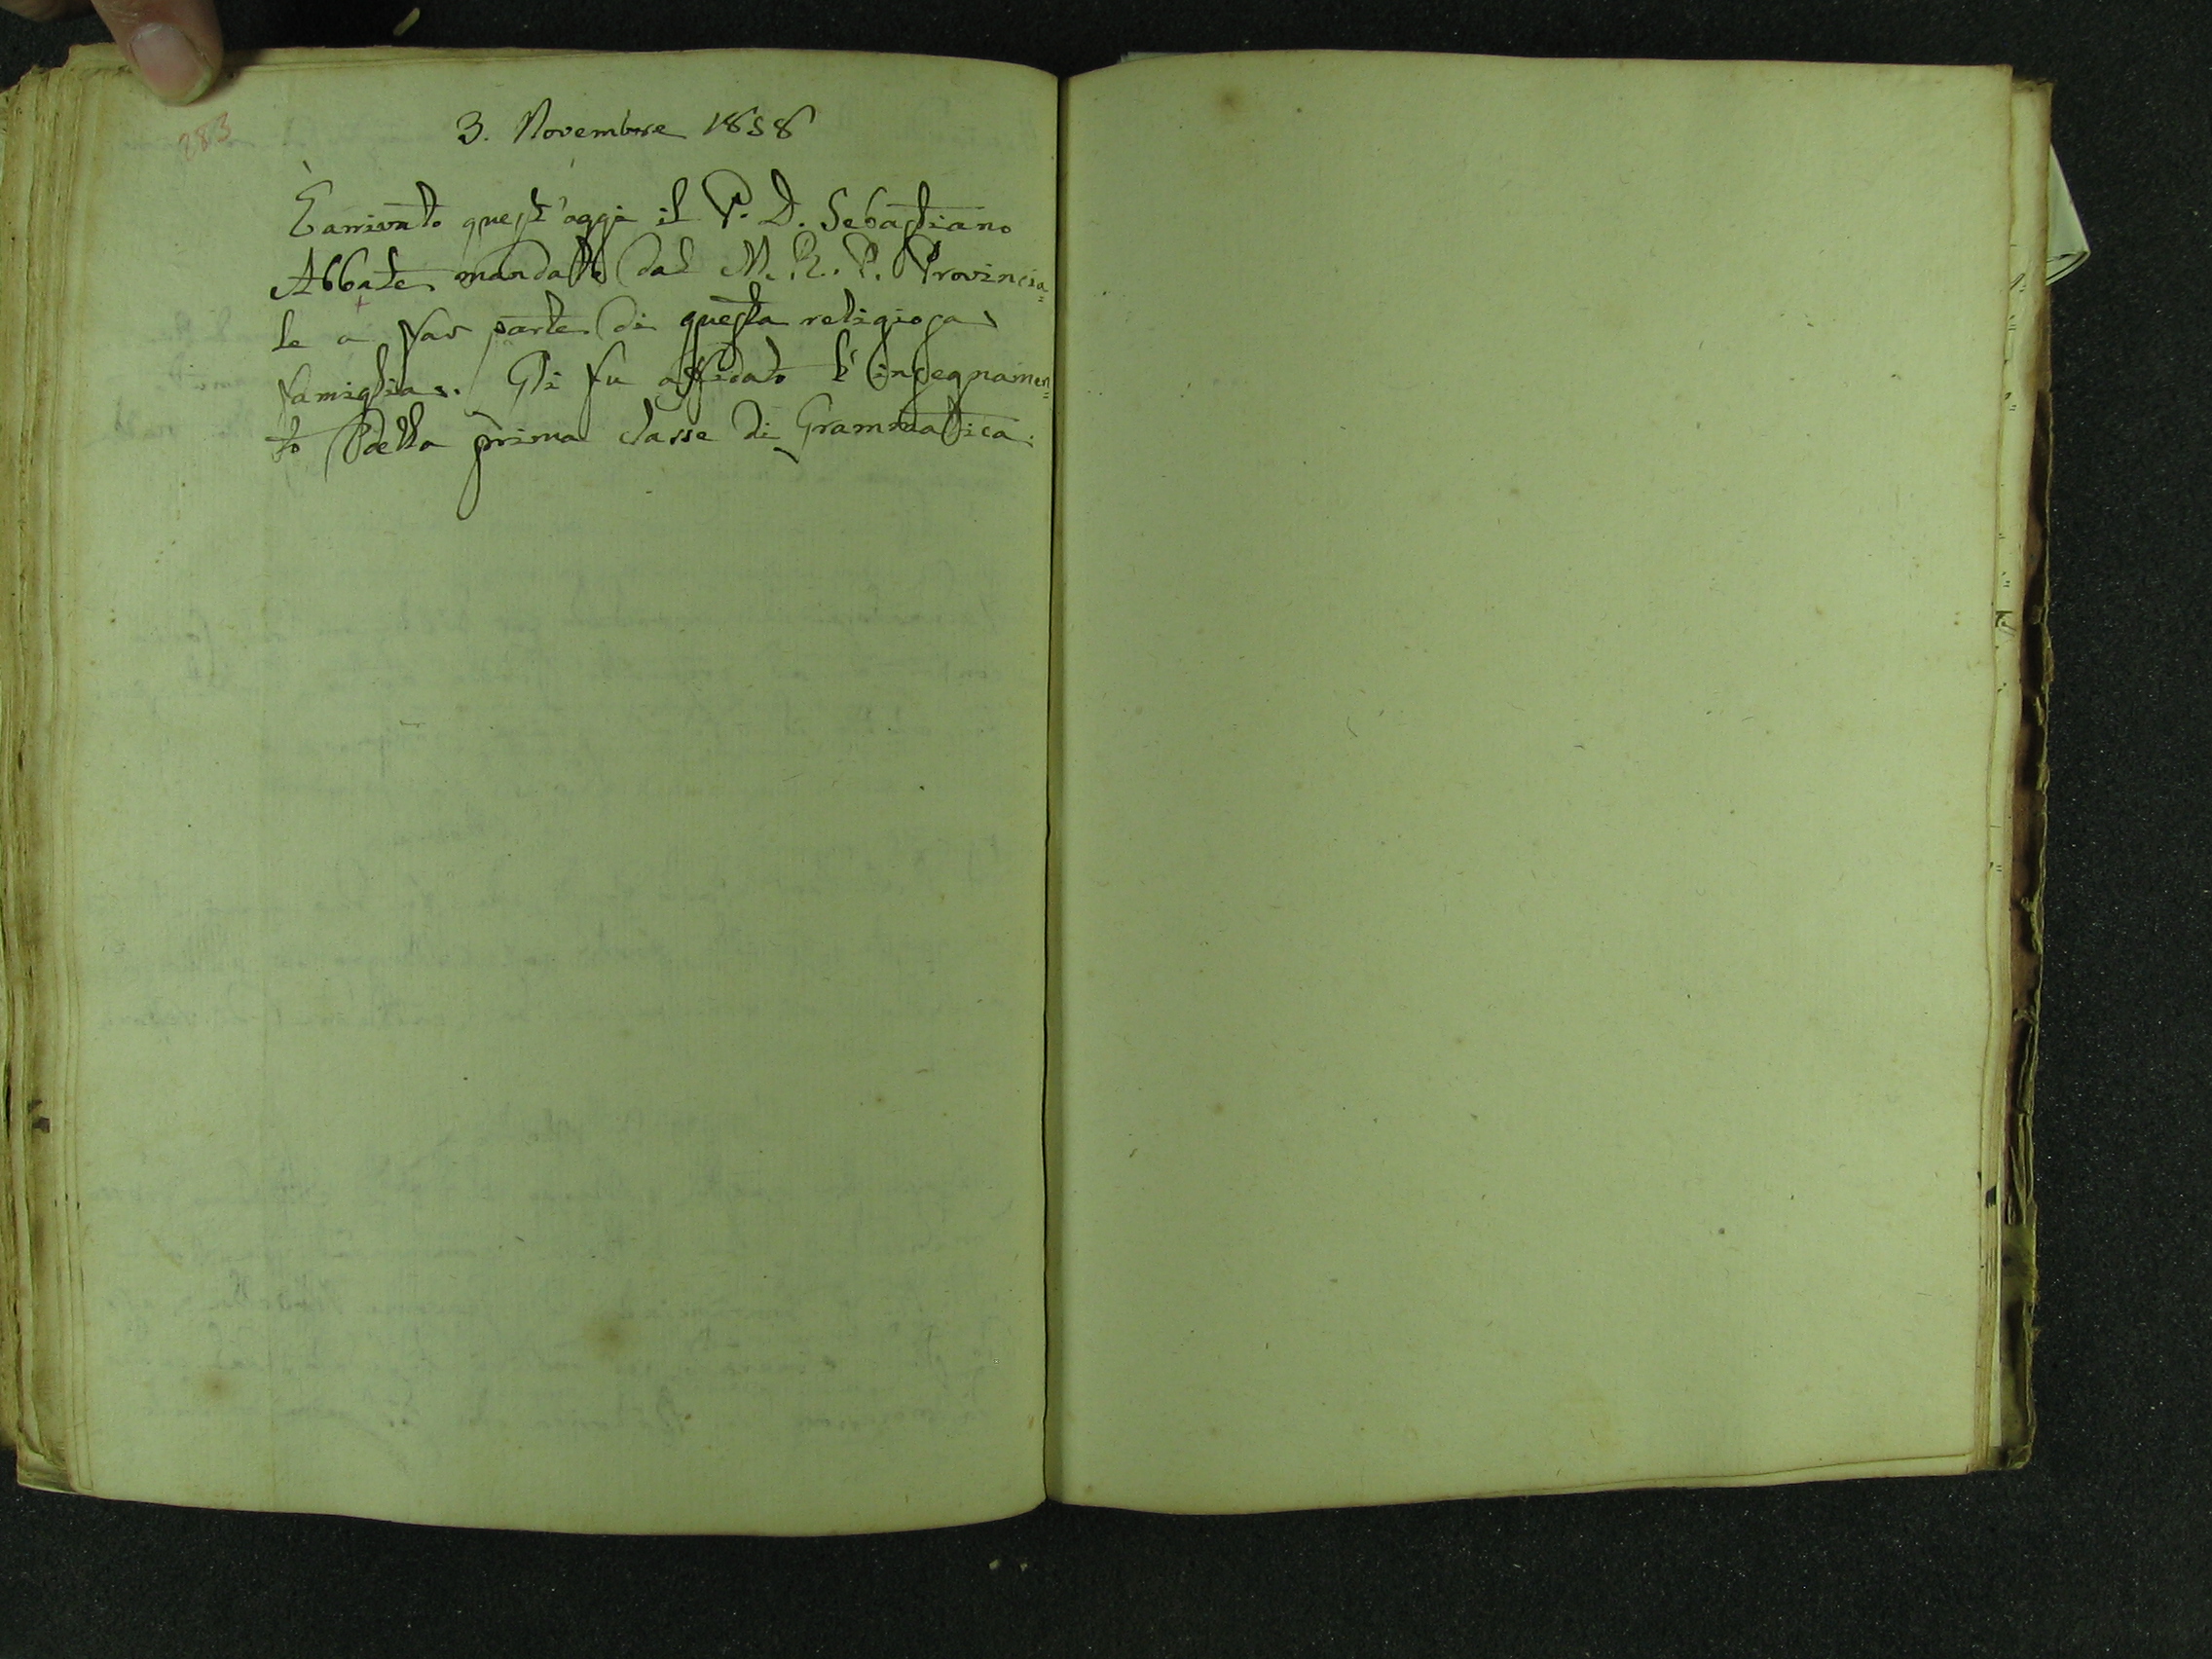 283
3. Novembre 1858
È arrivato quest'oggi il P. D. Sebastiano
Abbate mandato dal M. R. P. Provincia=
le a far parte di questa religiosa
famiglia. Gli fu affidato l'insegnamen=
to della prima classe di Grammatica.